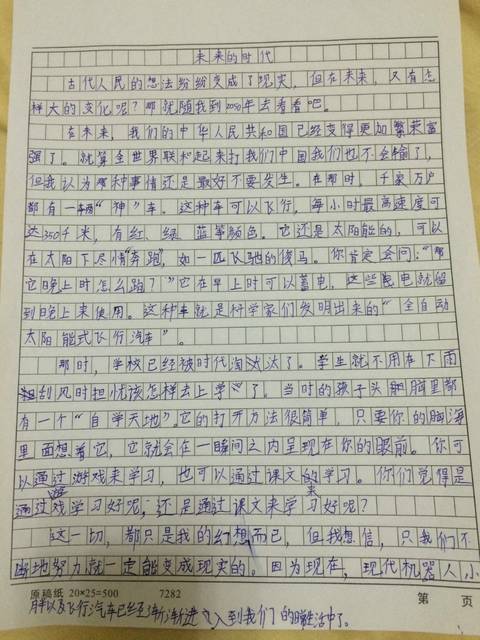 未来的时代
古代人民的想法纷纷变成了现实，但在未来，又有怎
样大的变化呢？那就随我到2050年去看看吧。
在未来，我们的中华人民共和国已经变得更加繁荣富
强了。就算全世界联和起来打我们中国我们也不会输了，
但我认为那种事情还是最好不要发生。在那时，千家万户
都有一辆“神”车。这种车可以飞行，每小时最高速度可
达350千米，有红、绿、蓝等颜色。它还是太阳能的，可以
在太阳下尽情“奔跑”，如一匹飞驰的俊马。你肯定会问：“那
它晚上时怎么跑？”它在早上时可以蓄电，这些电就留
到晚上来使用。这种车就是科学家们发明出来的“全自动
太阳能式飞行汽车”。
那时，学校已经被时代淘汰了。学生就不用在下雨
刮风时担忧该怎样去上学了。当时的孩子头脑里都
有一个“自学天地”。它的打开方法很简单，只要你的脑海
里面想着它，它就会在一瞬间之内呈现在你的眼前。你可
以通过游戏来学习，也可以通过课文来学习。你们觉得是
通过游戏学习好呢，还是通过课文来学习好呢？
这一切，都只是我的幻想而已，但我想信，只我们不
断地努力就一定能变成现实的。因为现在，现代机器人小
原稿纸 20×25=500 7282 第 页
胖以及飞行汽车已经渐渐进入到我们的生活中了。